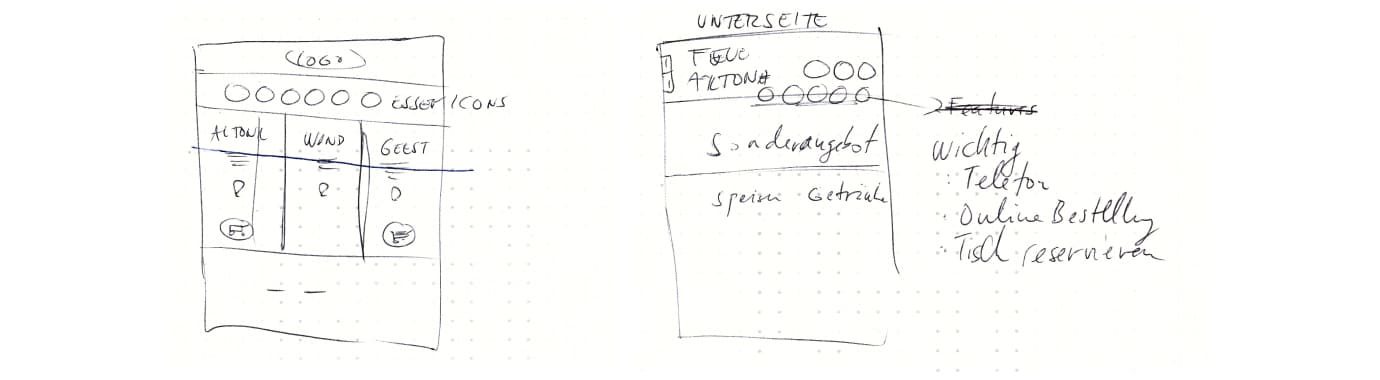 (LOGO)
ESSEN ICONS
ALTONA
WAND
GEEST
UNTERSEITE
ALTONA
Features
Sonderangebot
Wichtig
: Telefon
Speisen · Getränke
· Online Bestellg
: Tisch reservieren